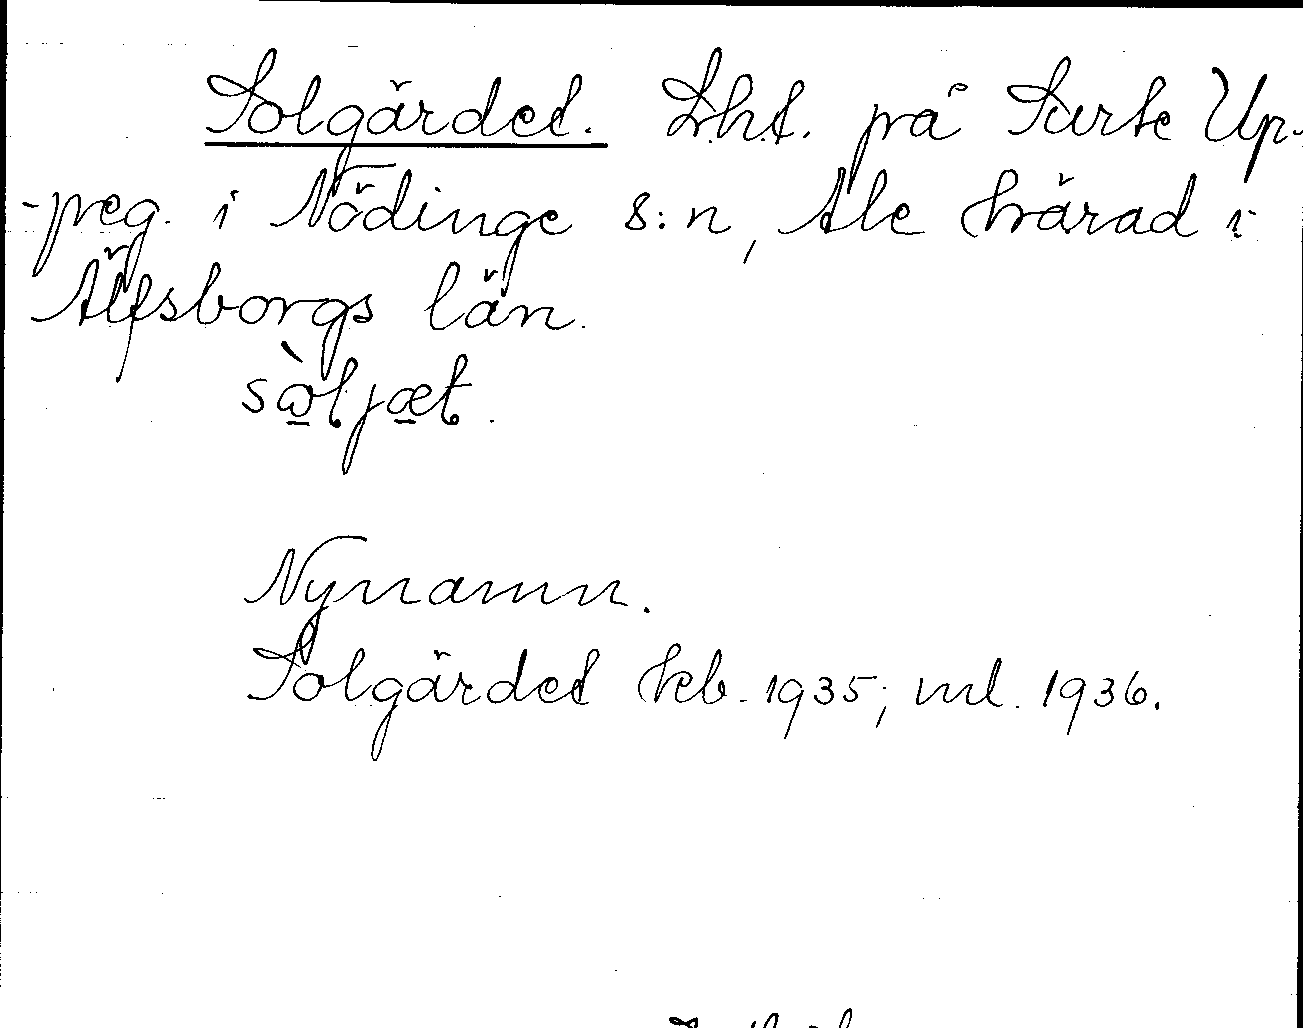 Solgärdet. Lht. på Surte Up-
-peg. i Nödinge s:n, Ale härad i
Älfsborgs län.
sàljæt.
Nynamn.
Solgärdet hcb. 1935; ml. 1936.